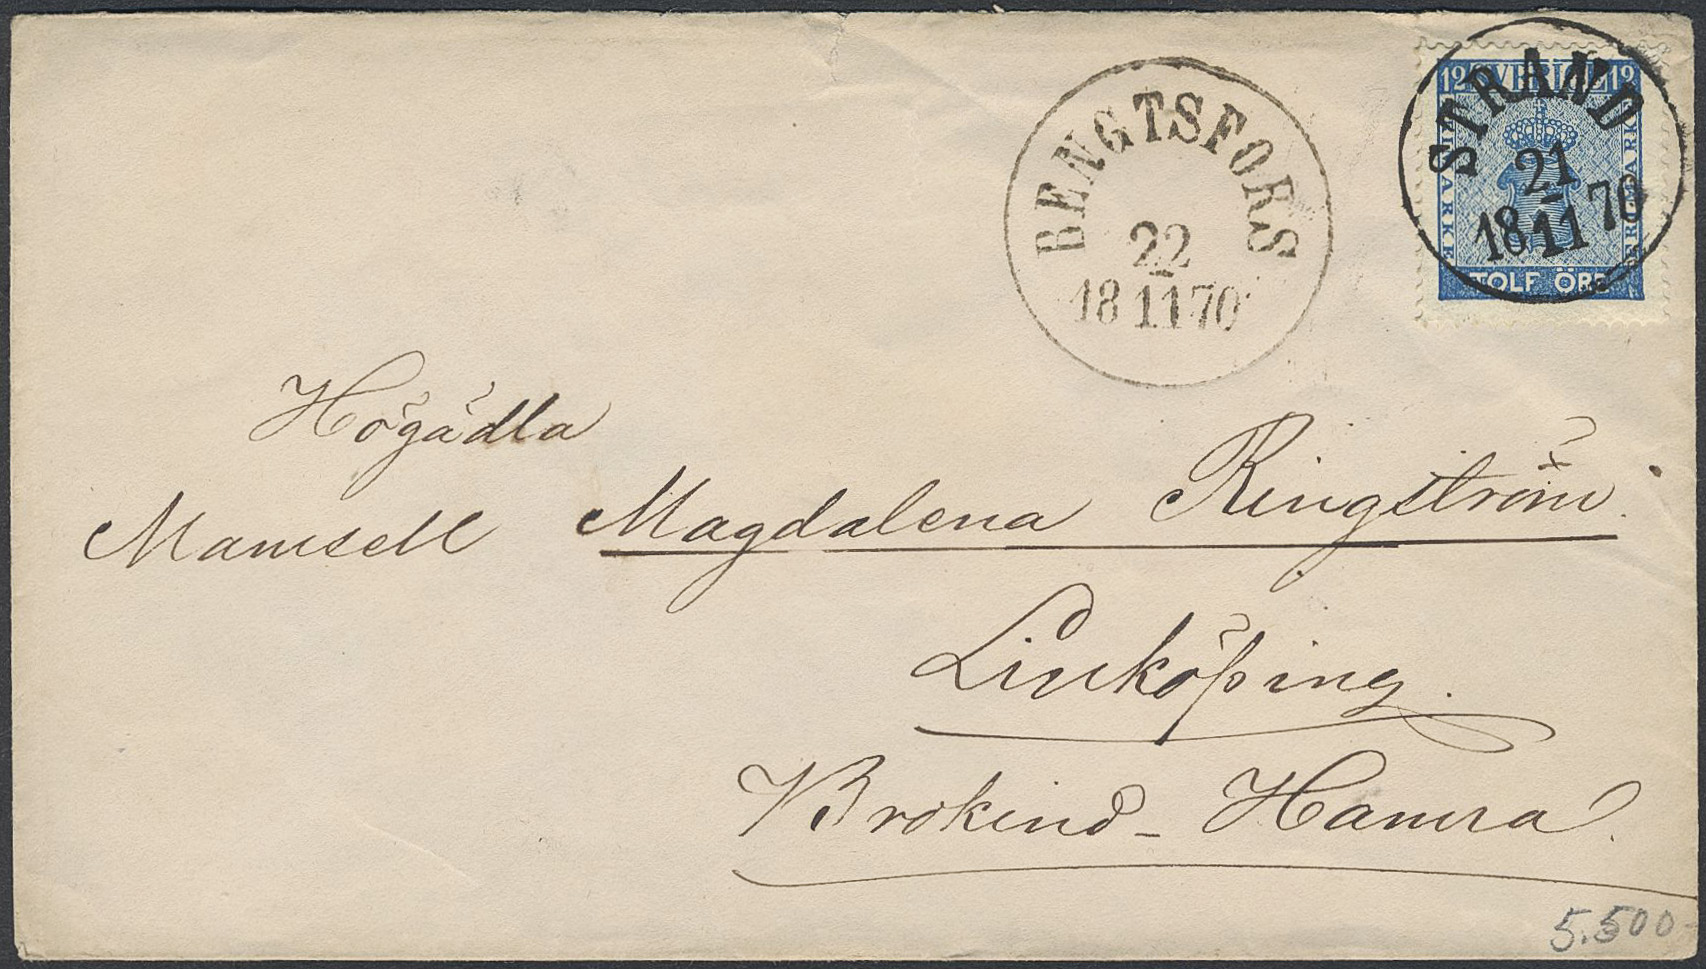 BENGTSFORS
22
18 11 70
STRAND
21
18 11 70
12 SVERIGE 12
FRIMÄRKE
FRIMÄRKE
TOLF ÖRE
Högädla
Mamsell Magdalena Ringström.
Linköping.
Brokind - Hamra
5.500-